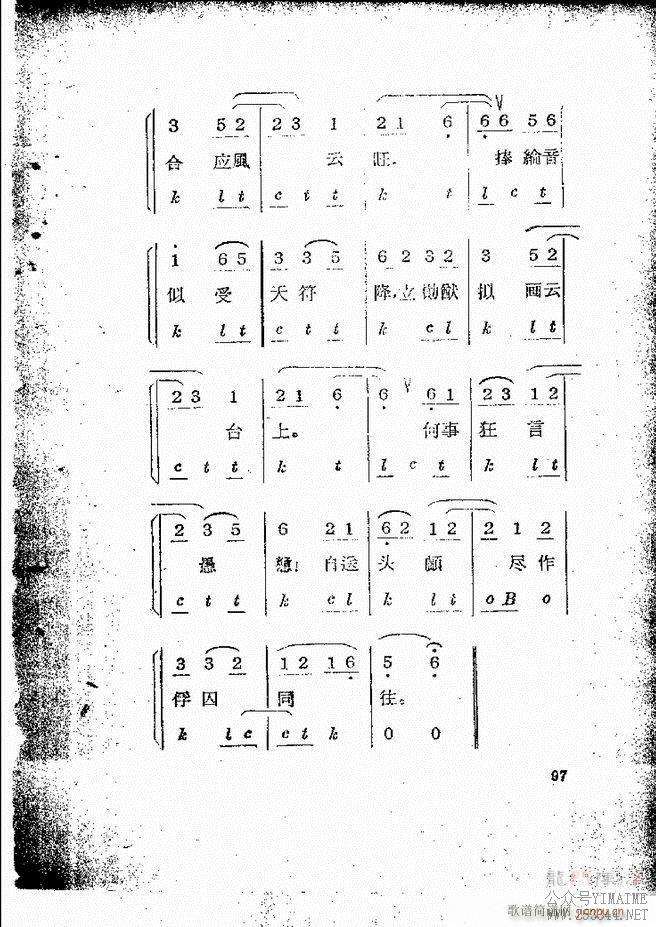 3 5 2 2 3 1 2 1 6 6 6 5 6
合 应風 云 旺. 捧 綸音
k l t c t t k t l c t
1 6 5 3 3 5 6 2 3 2 3 5 2
似 受 天 符 降,立 勋猷 拟 画云
k l t c t t k c l k l t
2 3 1 2 1 6 6 6 1 2 3 1 2
台 上。 何事 狂 言
c t t k t l c t k l t
2 3 5 6 2 1 6 2 1 2 2 1 2
愚 戆! 自送 头 顱 尽 作
c t t k c l k l t o B o
3 3 2 1 2 1 6 5 6
俘 囚 同 往。
k l c c t k 0 0
97
歌谱简谱网
公众号YIMAIME